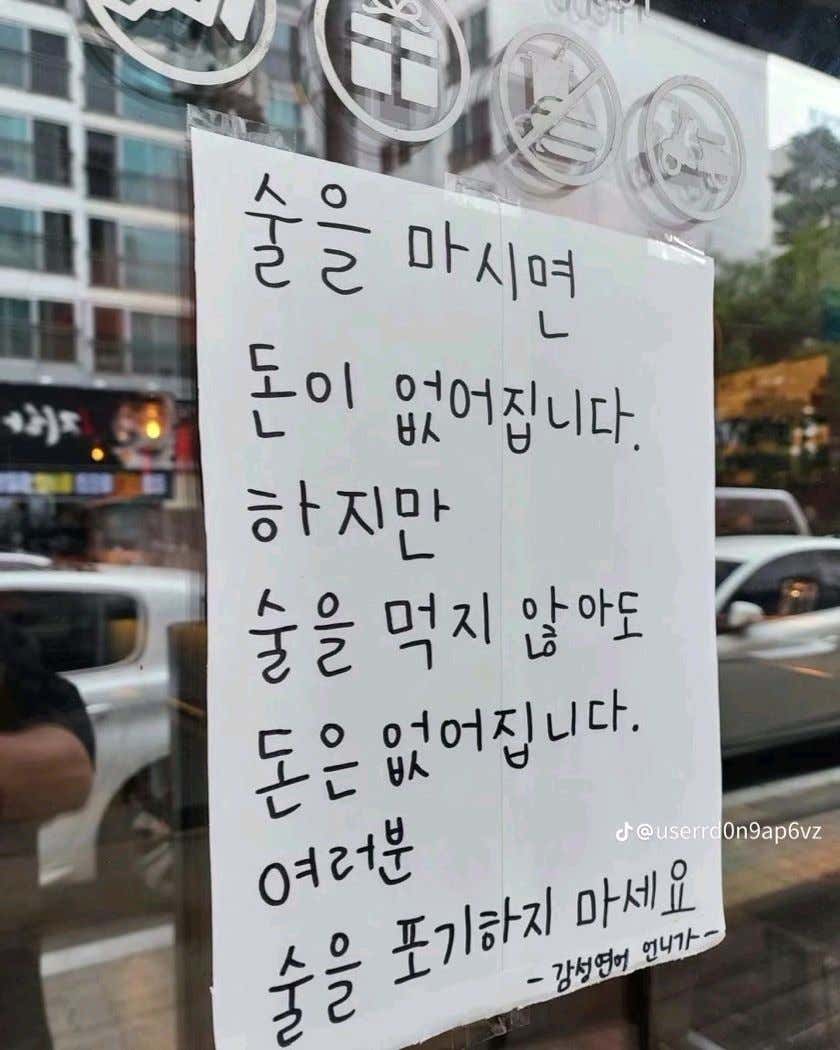 술을 마시면
돈이 없어집니다.
하지만
술을 먹지 않아도
돈은 없어집니다.
여러분
술을 포기하지 마세요
- 감성연어 언니가 -
@userrd0n9ap6vz